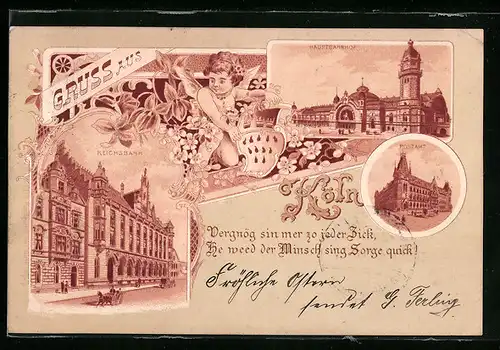 GRUSS AUS
HAUPTBAHNHOF
REICHSBANK
POSTAMT
Köln
Vergnög sin mer zo jeder Zick,
He weed der Minsch sing Sorge quick!
Fröhliche Ostern
sendet G. Terling